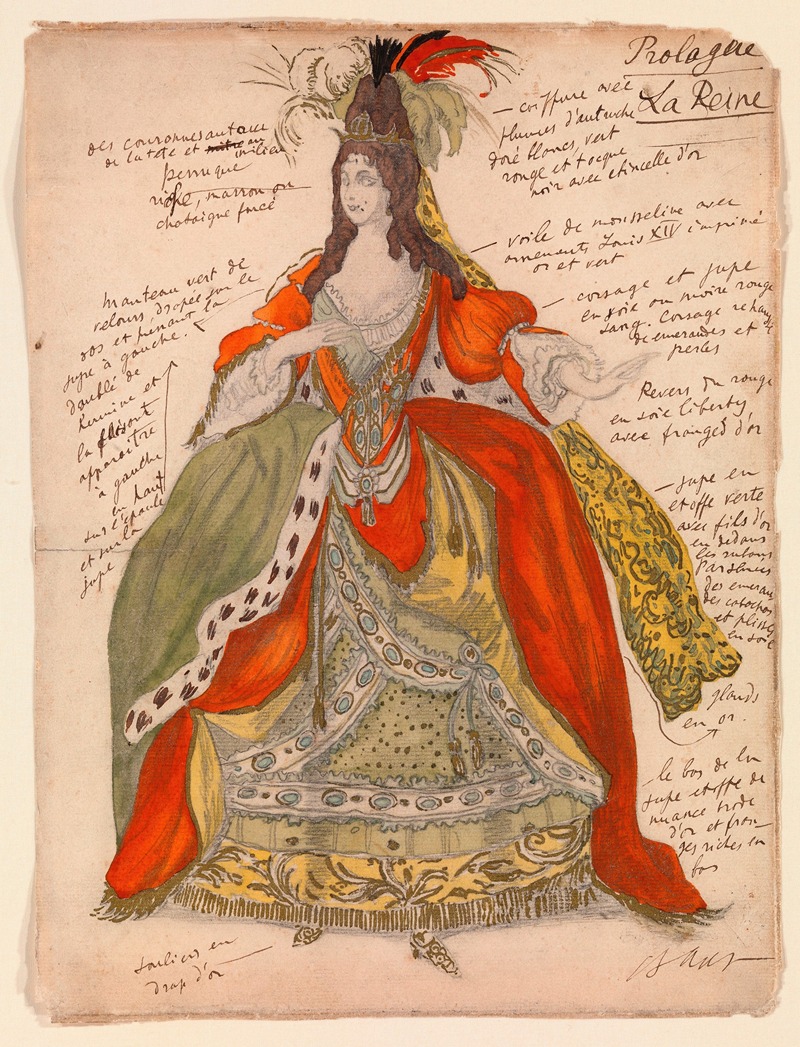 Prologue
La Reine
des couronnes autour
de la tete et au milieu
perruque
marron ou
chataigne foncé
— coiffure avec
plumes d'autruche
doré blancs, vert
rouge et toque
noir avec etincelle d'or
— voile de mousseline avec
ornements Louis XIV imprimé
or et vert
manteau vert de
velours, drapée sur le
dos et prenant la
jupe à gauche.
doublé de
hermine et
la faisant
apparaitre
à gauche
en haut
sur l'épaule
et sur la
jupe
— corsage et jupe
en soie ou moire rouge
sang. Corsage rehaussé
de emeraudes et
perles
Revers du rouge
en soie liberty
avec franges d'or
— jupe en
etoffe verte
avec fils d'or
en dedans
les rubans
parsemés
des
des cabochons
et plissé
en soie
glands
en or.
le bas de la
jupe etoffe de
nuance
d'or et fran-
ges riches en
bas
souliers en
drap d'or
Bakst